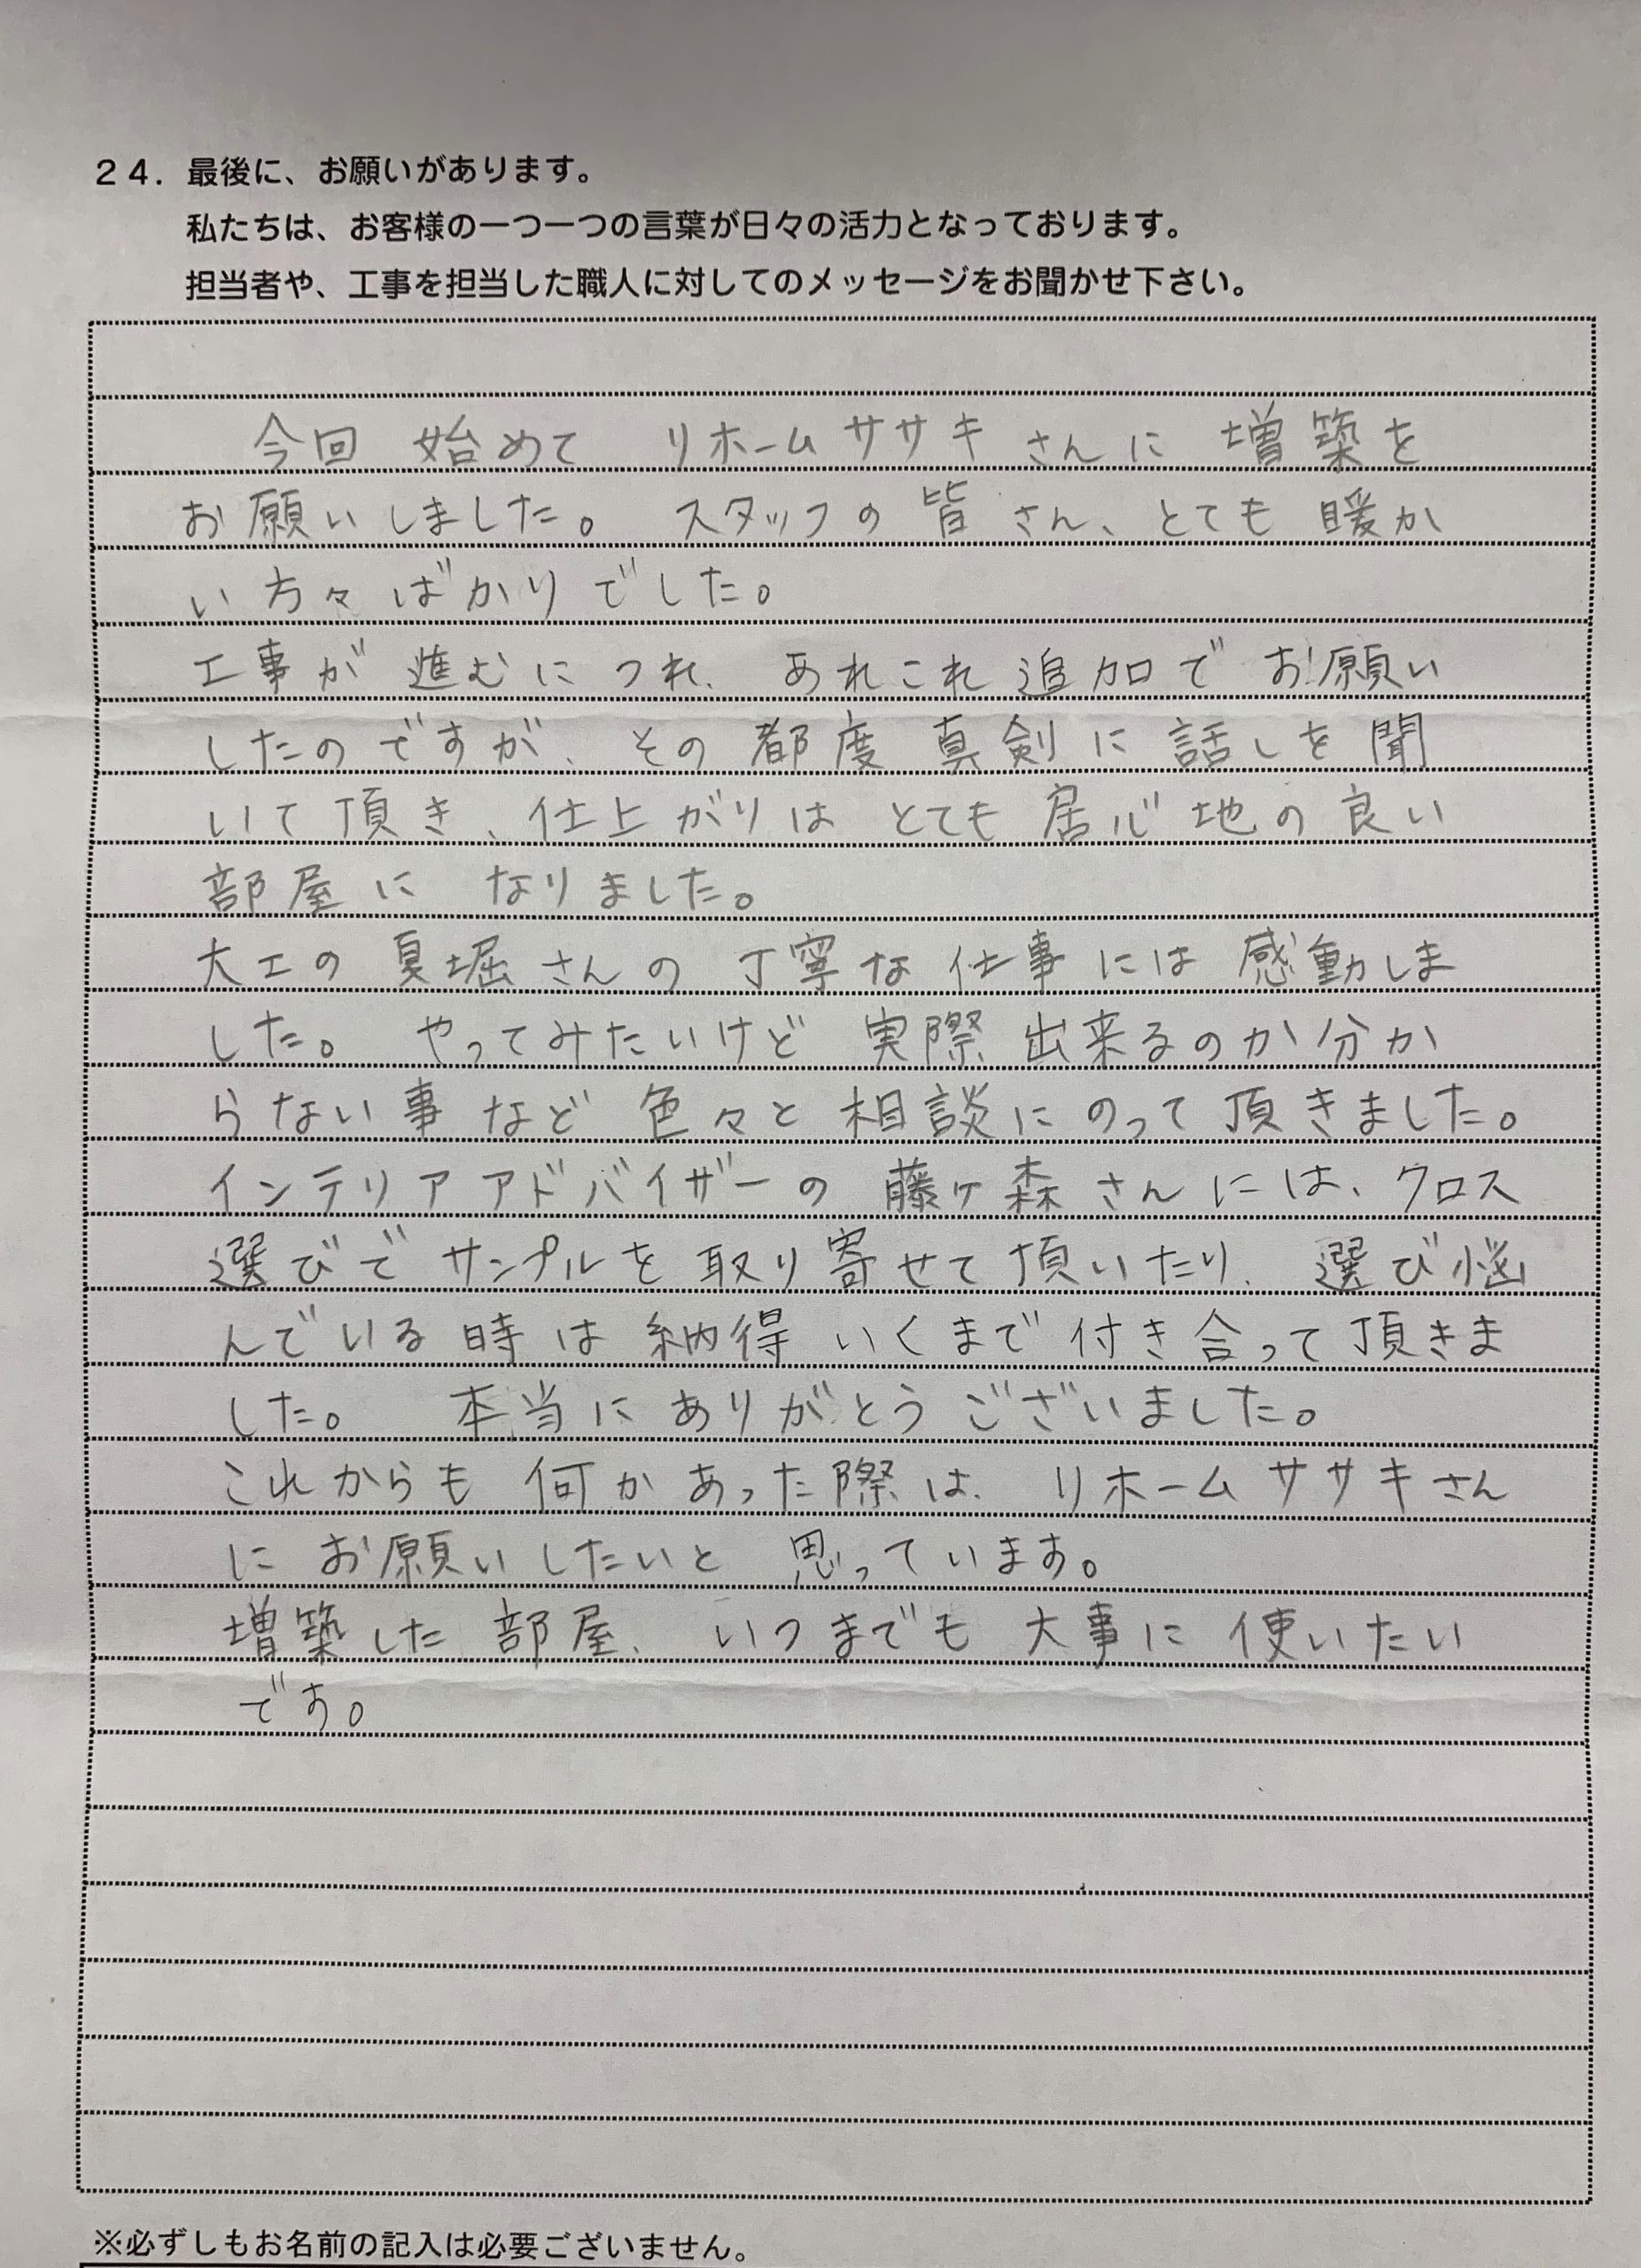 ２４．最後に、お願いがあります。
私たちは、お客様の一つ一つの言葉が日々の活力となっております。
担当者や、工事を担当した職人に対してのメッセージをお聞かせ下さい。
今回 始めて リホームササキさんに 増築を
お願いしました。 スタッフの皆さん、とても暖か
い方々ばかりでした。
工事が進むにつれ、あれこれ追加でお願い
したのですが、その都度真剣に話しを聞
いて頂き、仕上がりはとても居心地の良い
部屋に なりました。
大工の夏堀さんの丁寧な仕事には感動しま
した。 やってみたいけど 実際出来るのか分か
らない事など色々と相談にのって頂きました。
インテリアアドバイザーの藤ヶ森さんには、クロス
選びでサンプルを取り寄せて頂いたり、選び悩
んでいる時は納得いくまで付き合って頂きま
した。 本当にありがとうございました。
これからも何かあった際は、リホームササキさん
にお願いしたいと 思っています。
増築した部屋、いつまでも大事に使いたい
です。
※必ずしもお名前の記入は必要ございません。